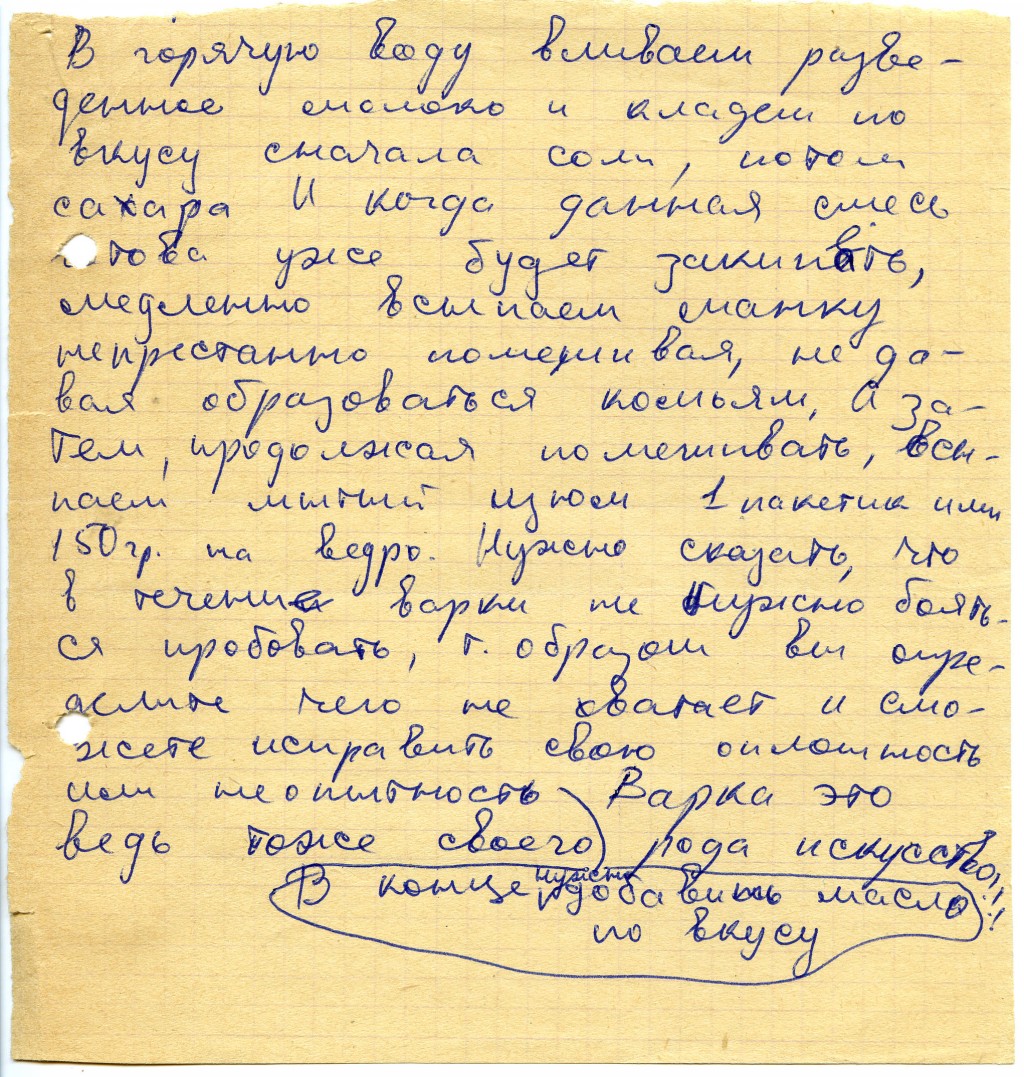 В горячую воду вливаем разве-
денное молоко и кладем по
вкусу сначала соли, потом
сахара И когда данная смесь
готова уже будет закипать,
медленно всыпаем манку
непрестанно помешивая, не да-
вая образоваться комьям, А за-
тем, продолжая помешивать, всы-
паем мытый изюм 1 пакетик или
150 гр. на ведро. Нужно сказать, что
в течении варки не нужно боять-
ся пробовать, т. образом вы опре-
делите чего не хватает и смо-
жете исправить свою оплошность
или неопытность Варка это
ведь тоже своего рода искусство!!!
В конце нужно добавить масло
по вкусу